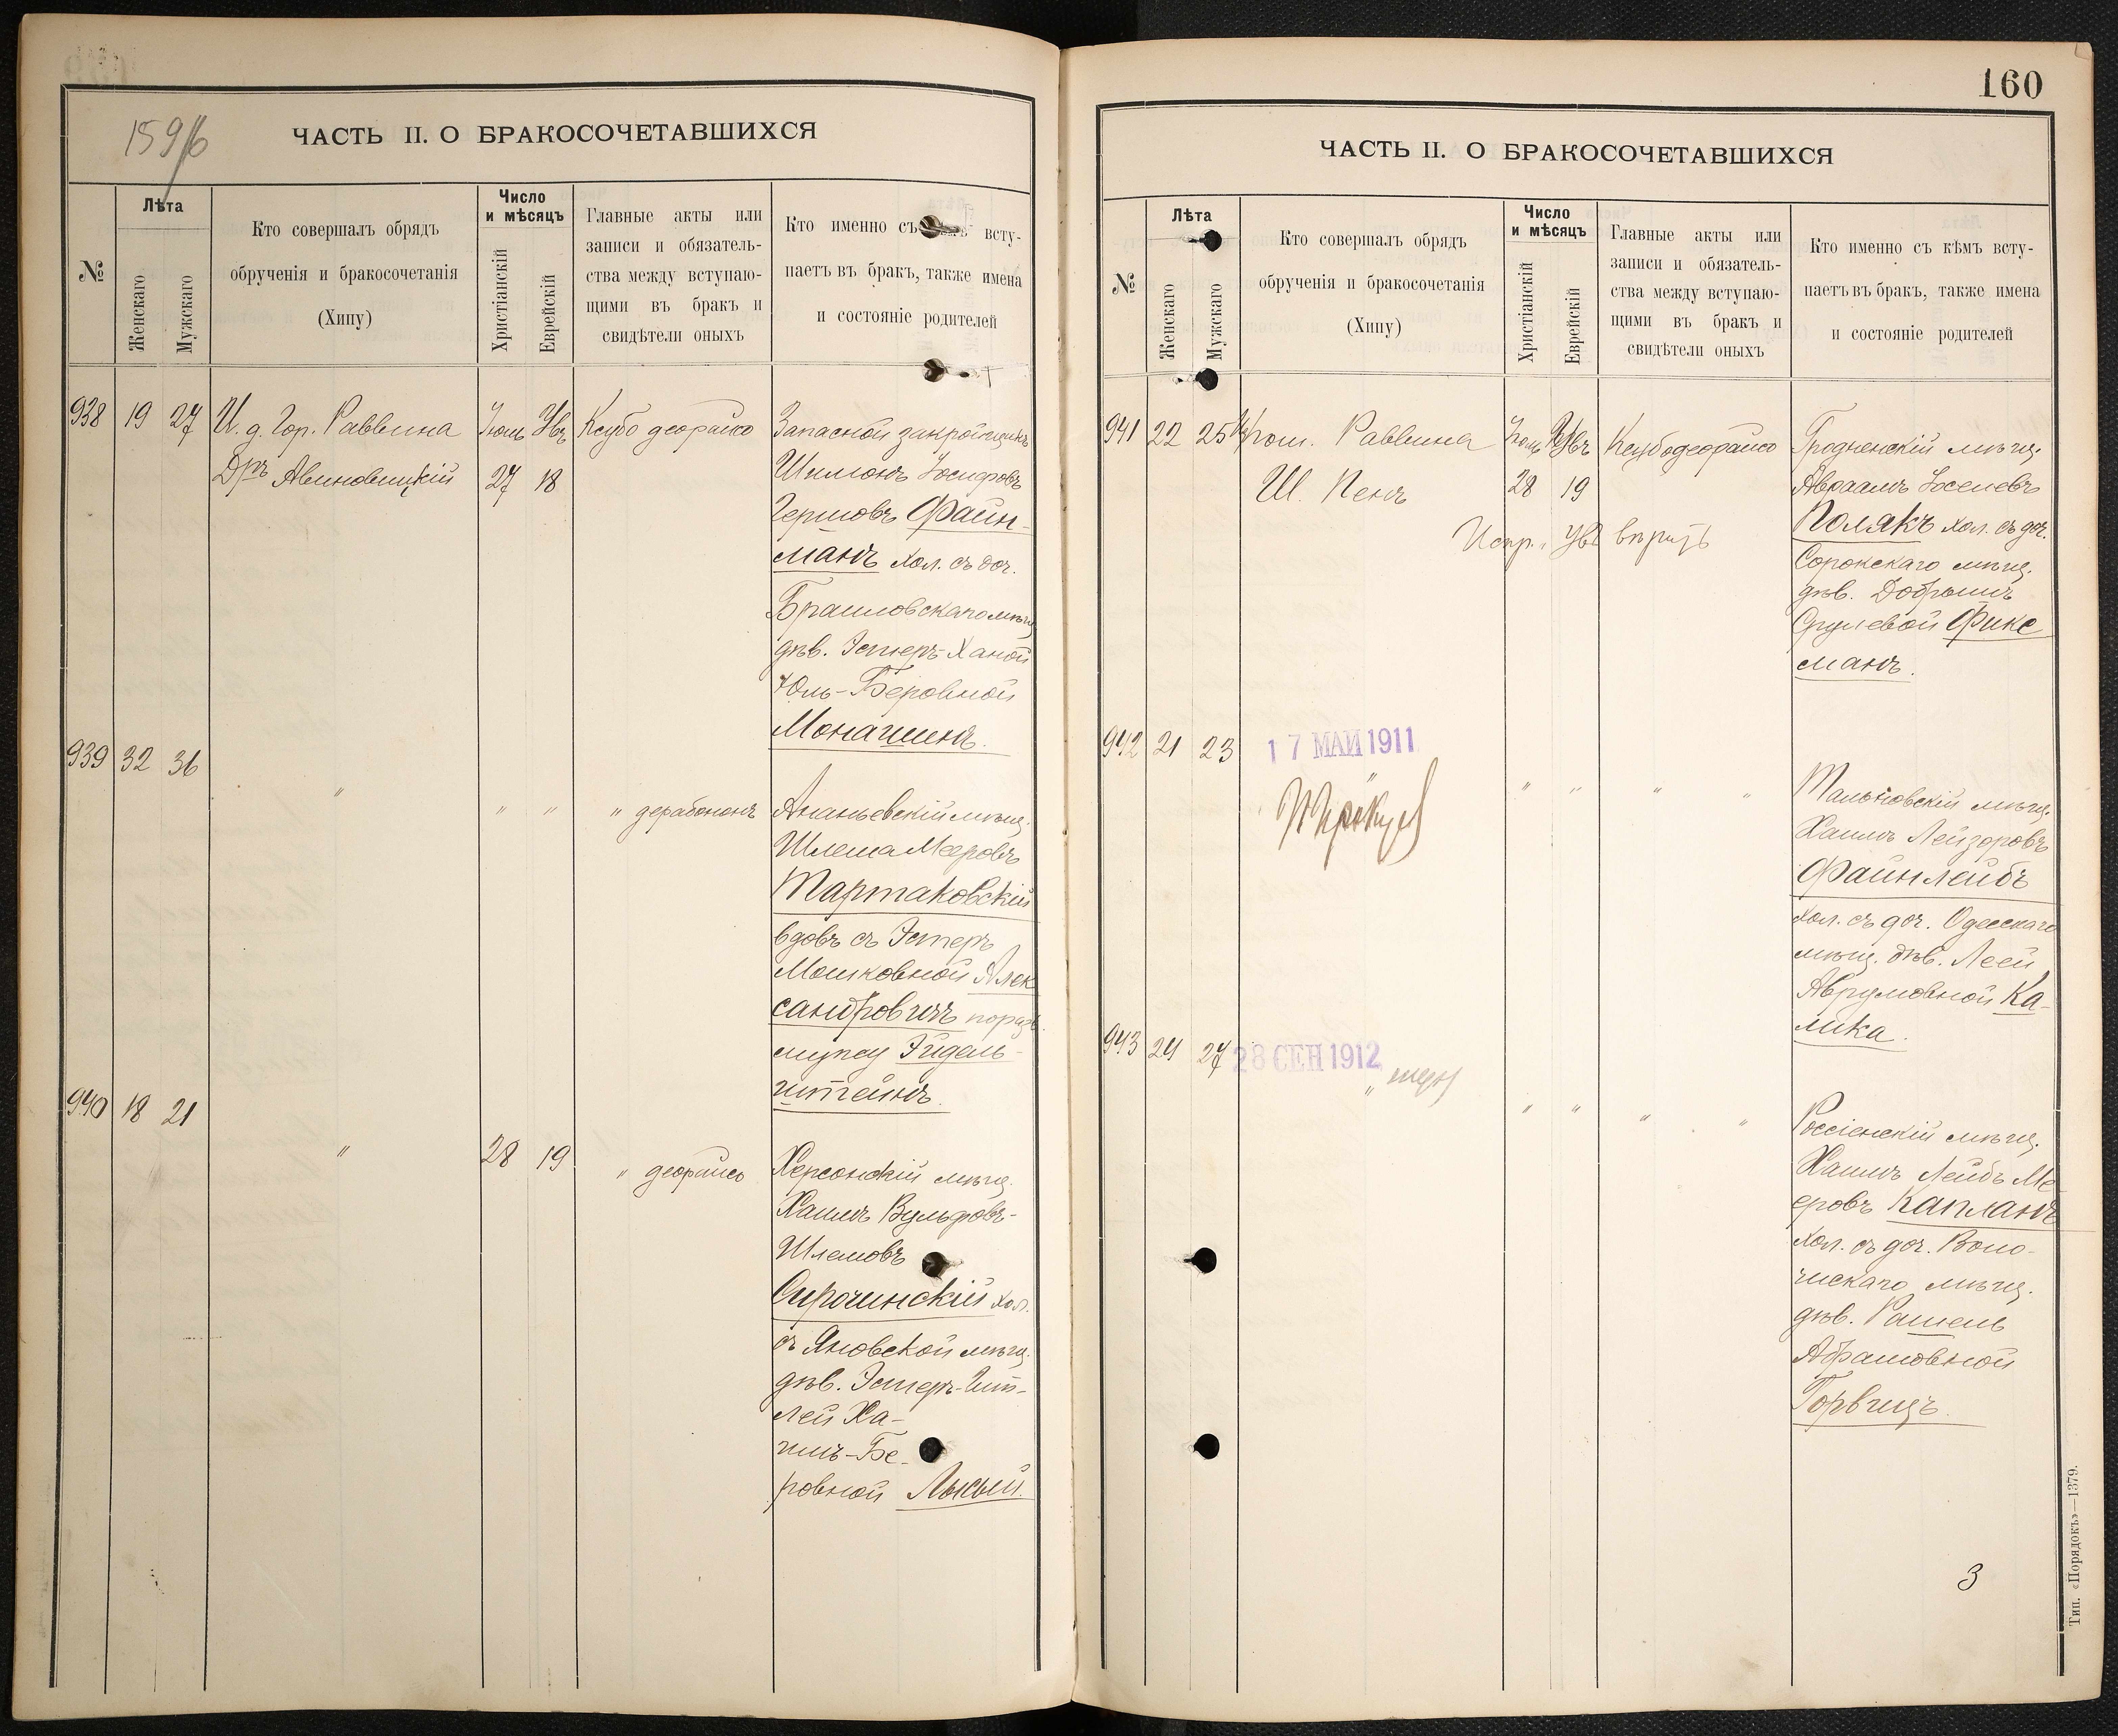 159/б
ЧАСТЬ II. О БРАКОСОЧЕТАВШИХСЯ
№
Лѣта
Женскаго
Мужскаго
Кто совершалъ обрядъ
обрученія и бракосочетанія
(Хипу)
Число
и мѣсяцъ
Христіанскій
Еврейскій
Главные акты или
записи и обязатель-
ства между вступаю-
щими въ бракъ и
свидѣтели оныхъ
Кто именно съ всту-
паетъ въ бракъ, также имена
и состояніе родителей
938 19 27 И. д. Гор. Раввина
Дръ Авиновицкій
Іюль Увъ
27 18
Ксубо деорайсо
Запасной закройщикъ
Шимонъ Іосифовъ
Гершовъ Файн-
манъ хол. съ доч.
Браиловскаго мѣщ.
дѣв. Эстеръ-Ханой
Юль-Беровной
Монашинъ.
939 32 36
" " " " дерабононъ
Ананьевскій мѣщ.
Шлема Мееровъ
Тартаковскій
вдовъ съ Эстеръ
Мошковной Алек
сандровичъ по
мужу Эйдель-
штейнъ.
940 18 21
" 28 19 " деорайсо
Херсонскій мѣщ.
Хаимъ Вульфовъ-
Шлемовъ
Сирочинскій хол.
съ Яновской мѣщ.
дѣв. Эстеръ-Гит-
лей Ха-
имъ-Бе-
ровной Лысый.
160
ЧАСТЬ II. О БРАКОСОЧЕТАВШИХСЯ
№
Лѣта
Женскаго
Мужскаго
Кто совершалъ обрядъ
обрученія и бракосочетанія
(Хипу)
Число
и мѣсяцъ
Христіанскій
Еврейскій
Главные акты или
записи и обязатель-
ства между вступаю-
щими въ бракъ и
свидѣтели оныхъ
Кто именно съ кѣмъ всту-
паетъ въ бракъ, также имена
и состояніе родителей
941 22 25 Пом. Раввина
Ш. Пенъ
Іюль Увъ
28 19
Ксубо деорайсо
Испр. "Увъ" вѣрить
Гродненскій мѣщ.
Авраамъ Іоселевъ
Полякъ хол. съ доч.
Сорокскаго мѣщ.
дѣв. Добрышъ
Срулевой Фикс
манъ.
942 21 23
17 МАИ 1911
" " " " "
Тальновскій мѣщ.
Хаимъ Лейзоровъ
Файнлейбъ
хол. съ доч. Одесскаго
мѣщ. дѣв. Леей
Аврумовной Ка-
лика.
943 24 27
28 СЕН 1912
" " " " "
Россіенскій мѣщ.
Хаимъ Лейбъ Ме-
еровъ Капланъ
хол. съ доч. Воло-
чискаго мѣщ.
дѣв. Рашель
Абрамовной
Горвицъ.
3
Тип. «Порядокъ»—1379.